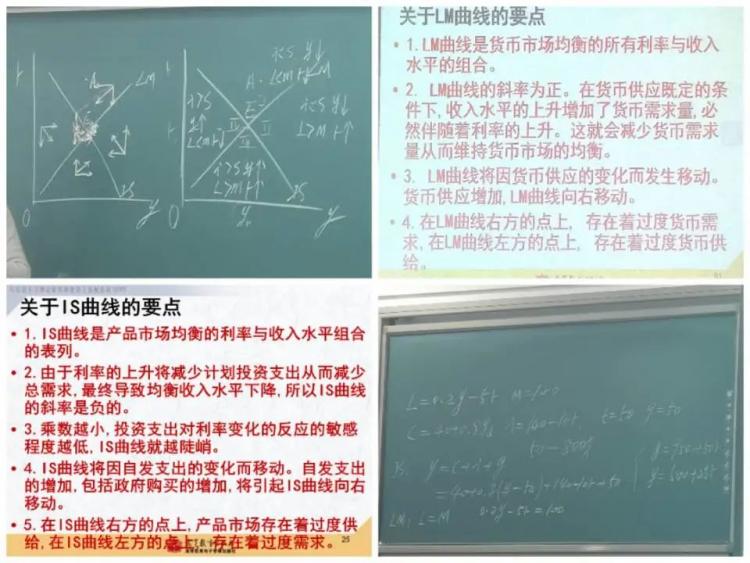 r
A
LM
IS
O
y
i<s y↓
A· L<m r↓ LM
i>s
y↑
L<m r↓
E
i<s y↓
L>M r↑
i>s y↑
L>m r↑
IS
O
y
关于LM曲线的要点
• 1.LM曲线是货币市场均衡的所有利率与收入
水平的组合。
• 2. LM曲线的斜率为正。在货币供应既定的条
件下,收入水平的上升增加了货币需求量,必
然伴随着利率的上升。这就会减少货币需求
量从而维持货币市场的均衡。
• 3. LM曲线将因货币供应的变化而发生移动。
货币供应增加,LM曲线向右移动。
• 4.在LM曲线右方的点上, 存在着过度货币需
求,在LM曲线左方的点上, 存在着过度货币供
给。
关于IS曲线的要点
• 1.IS曲线是产品市场均衡的利率与收入水平组合
的表列。
• 2.由于利率的上升将减少计划投资支出从而减少
总需求,最终导致均衡收入水平下降,所以IS曲线
的斜率是负的。
• 3.乘数越小,投资支出对利率变化的反应的敏感
程度越低,IS曲线就越陡峭。
• 4.IS曲线将因自发支出的变化而移动。自发支出
的增加,包括政府购买的增加,将引起IS曲线向右
移动。
• 5.在IS曲线右方的点上,产品市场存在着过度供
给,在IS曲线左方的点上, 存在着过度需求。
25
L=0.2y-5r M=100
t=50 g=50
IS y=c+i+g
LM: L=M 0.2y-5r=100